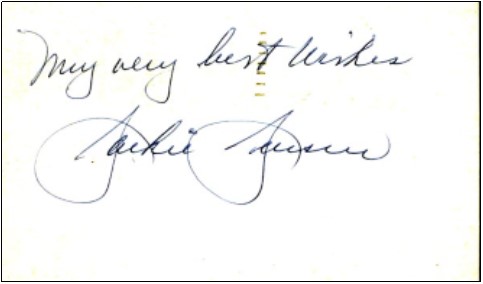 My very best Wishes
Jackie Jensen